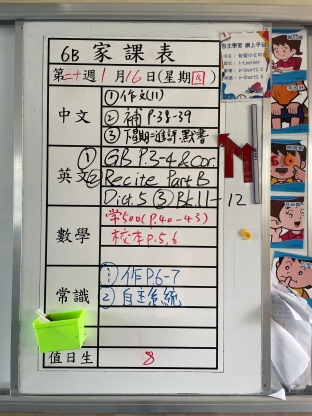 6B 家課表
第二十週 1月16日(星期四)
中文
①作文(11)
②補P.38-39
③下星期一進評.默書
英文
①GB P.3-4 & cor.
②Recite Part B
Dict.5 ③Bk 11-12
數學
學500(P.40-43)
校本P.5,6
常識
①作P.6-7
②自主系統
值日生
8
自主學習 網上平台